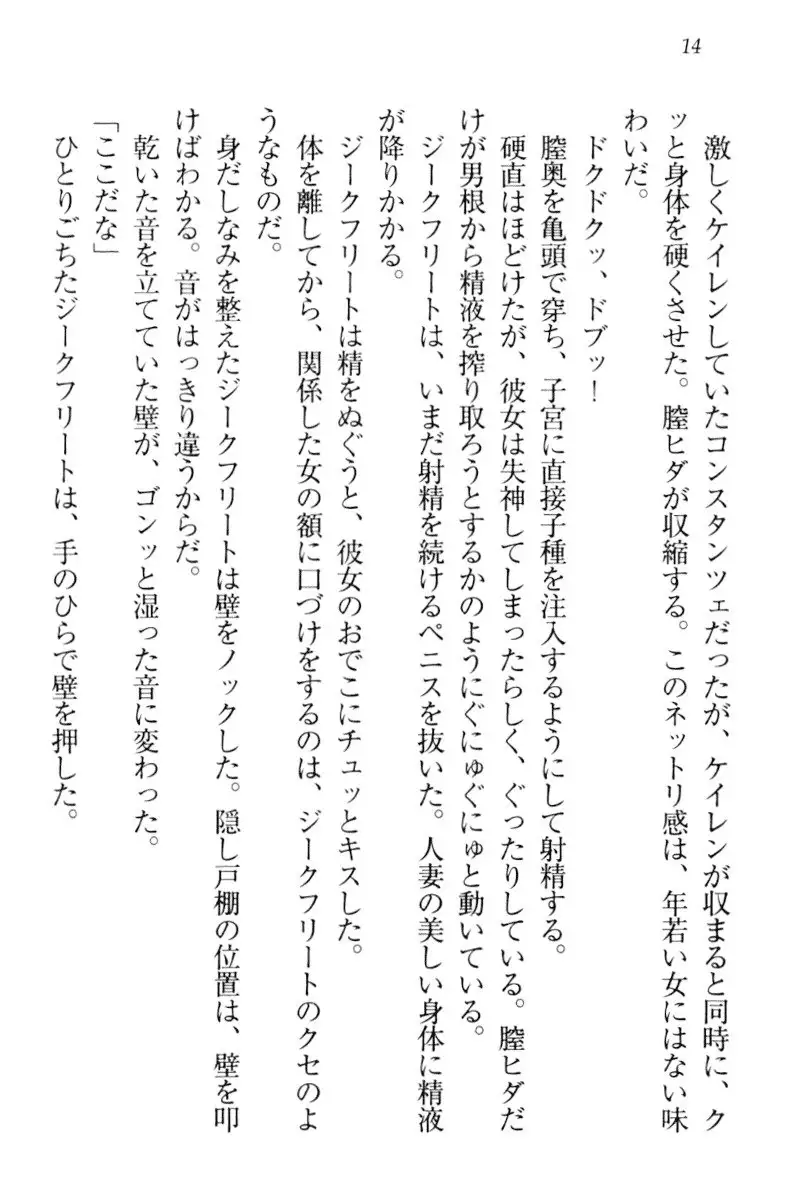 14
激しくケイレンしていたコンスタンツェだったが、ケイレンが収まると同時に、ク
ッと身体を硬くさせた。膣ヒダが収縮する。このネットリ感は、年若い女にはない味
わいだ。
ドクドクッ、ドブッ！
膣奥を亀頭で穿ち、子宮に直接子種を注入するようにして射精する。
硬直はほどけたが、彼女は失神してしまったらしく、ぐったりしている。膣ヒダだ
けが男根から精液を搾り取ろうとするかのようにぐにゅぐにゅと動いている。
ジークフリートは、いまだ射精を続けるペニスを抜いた。人妻の美しい身体に精液
が降りかかる。
ジークフリートは精をぬぐうと、彼女のおでこにチュッとキスした。
体を離してから、関係した女の額に口づけをするのは、ジークフリートのクセのよ
うなものだ。
身だしなみを整えたジークフリートは壁をノックした。隠し戸棚の位置は、壁を叩
けばわかる。音がはっきり違うからだ。
乾いた音を立てていた壁が、ゴンッと湿った音に変わった。
「ここだな」
ひとりごちたジークフリートは、手のひらで壁を押した。